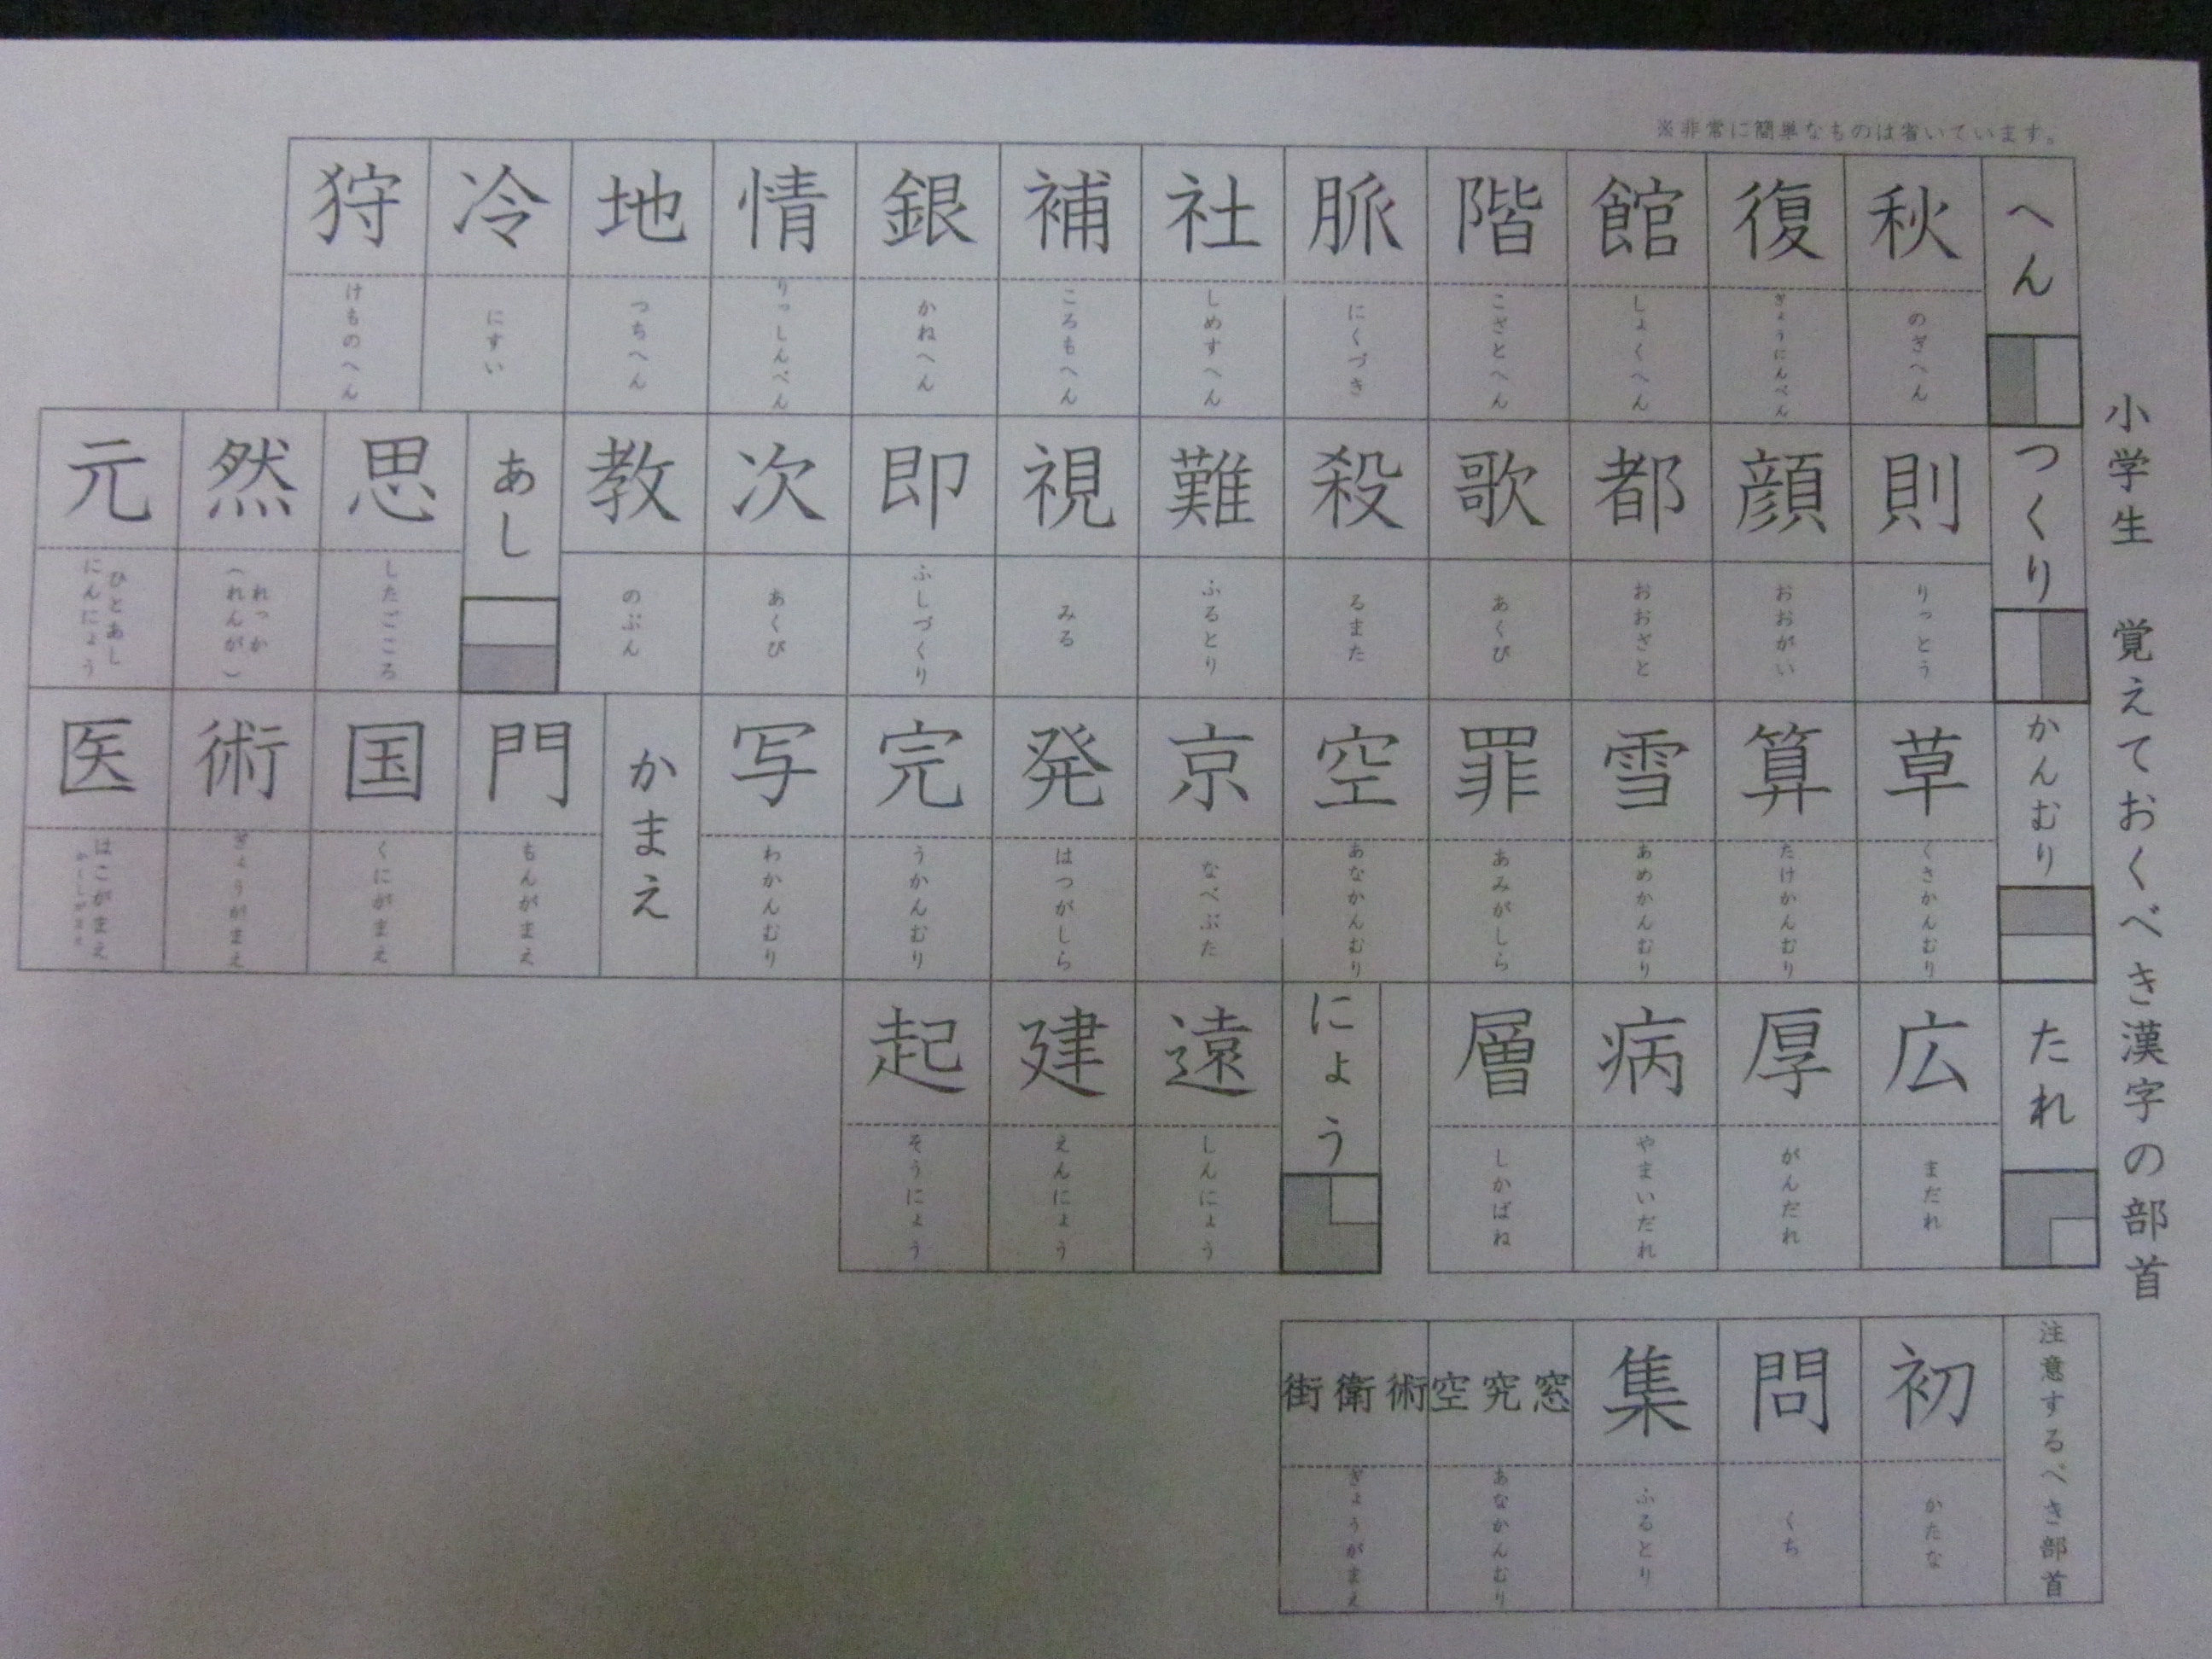 小学生 覚えておくべき漢字の部首
※非常に簡単なものは省いています。
へん
秋 のぎへん
復 ぎょうにんべん
館 しょくへん
階 こざとへん
脈 にくづき
社 しめすへん
補 ころもへん
銀 かねへん
情 りっしんべん
地 つちへん
冷 にすい
狩 けものへん
つくり
則 りっとう
顔 おおがい
都 おおざと
歌 あくび
殺 るまた
難 ふるとり
視 みる
即 ふしづくり
次 あくび
教 のぶん
あし
思 したごころ
然 れっか(れんが)
元 ひとあし にんにょう
かんむり
草 くさかんむり
算 たけかんむり
雪 あめかんむり
罪 あみがしら
空 あなかんむり
京 なべぶた
発 はつがしら
完 うかんむり
写 わかんむり
かまえ
門 もんがまえ
国 くにがまえ
術 ぎょうがまえ
医 はこがまえ かくしがまえ
たれ
広 まだれ
厚 がんだれ
病 やまいだれ
層 しかばね
にょう
遠 しんにょう
建 えんにょう
起 そうにょう
注意するべき部首
初 かたな
問 くち
集 ふるとり
空究窓 あなかんむり
街衛術 ぎょうがまえ